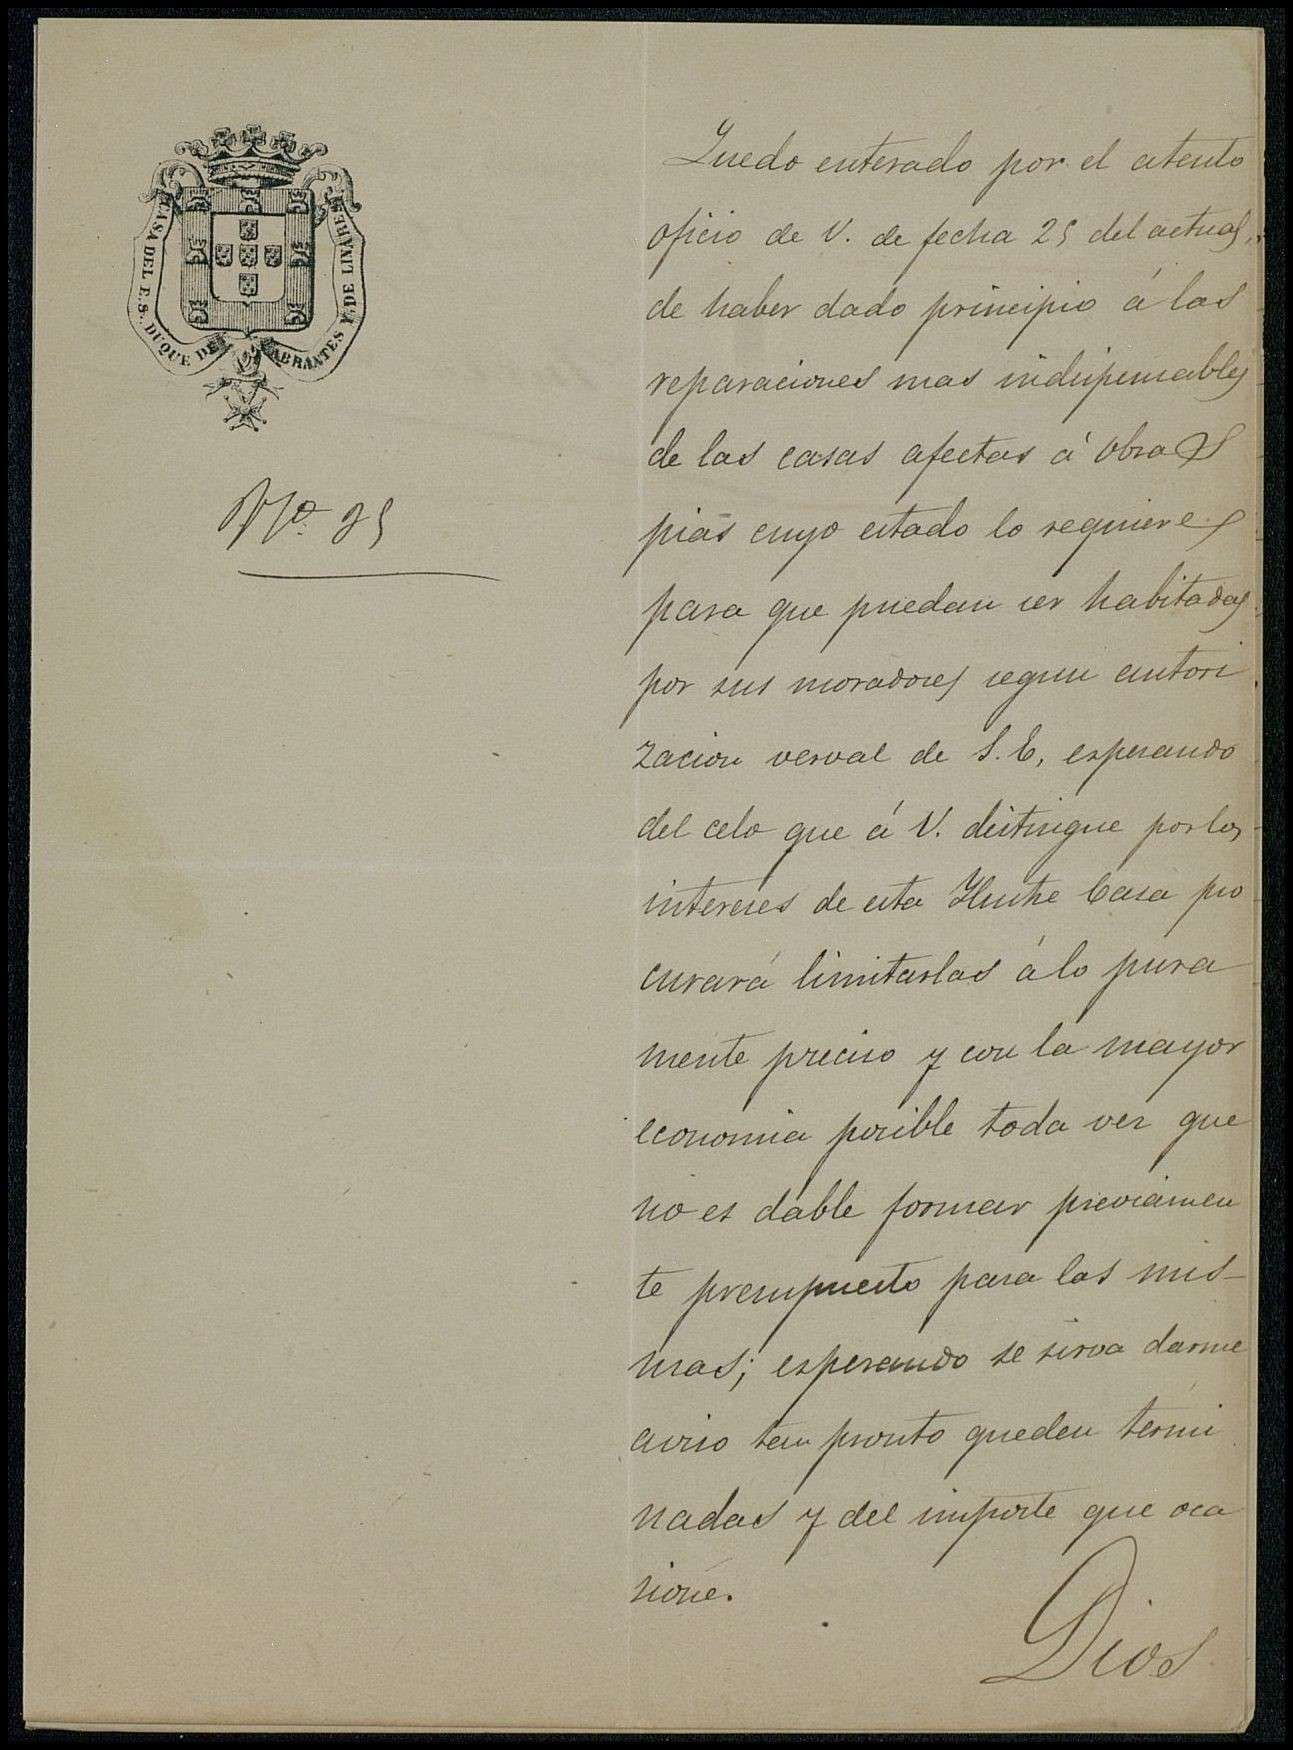 CASA DEL E. S. DUQUE DE ABRANTES Y DE LINARES
No. 25
Quedo enterado por el atento
oficio de V. de fecha 25 del actual,
de haber dado principio á las
reparaciones mas indispensables
de las casas afectas á obras
pias cuyo estado lo requieren
para que puedan ser habitadas
por sus moradores segun autori
zacion verval de S. E, esperando
del celo que á V. distingue por los
intereses de esta Ilustre Casa pro
curará limitarlas á lo pura
mente preciso y con la mayor
economia posible toda vez que
no es dable formar previamen
te presupuesto para las mis-
mas; esperando se sirva darme
aviso tan pronto queden termi
nadas y del importe que oca
sione.
Dios